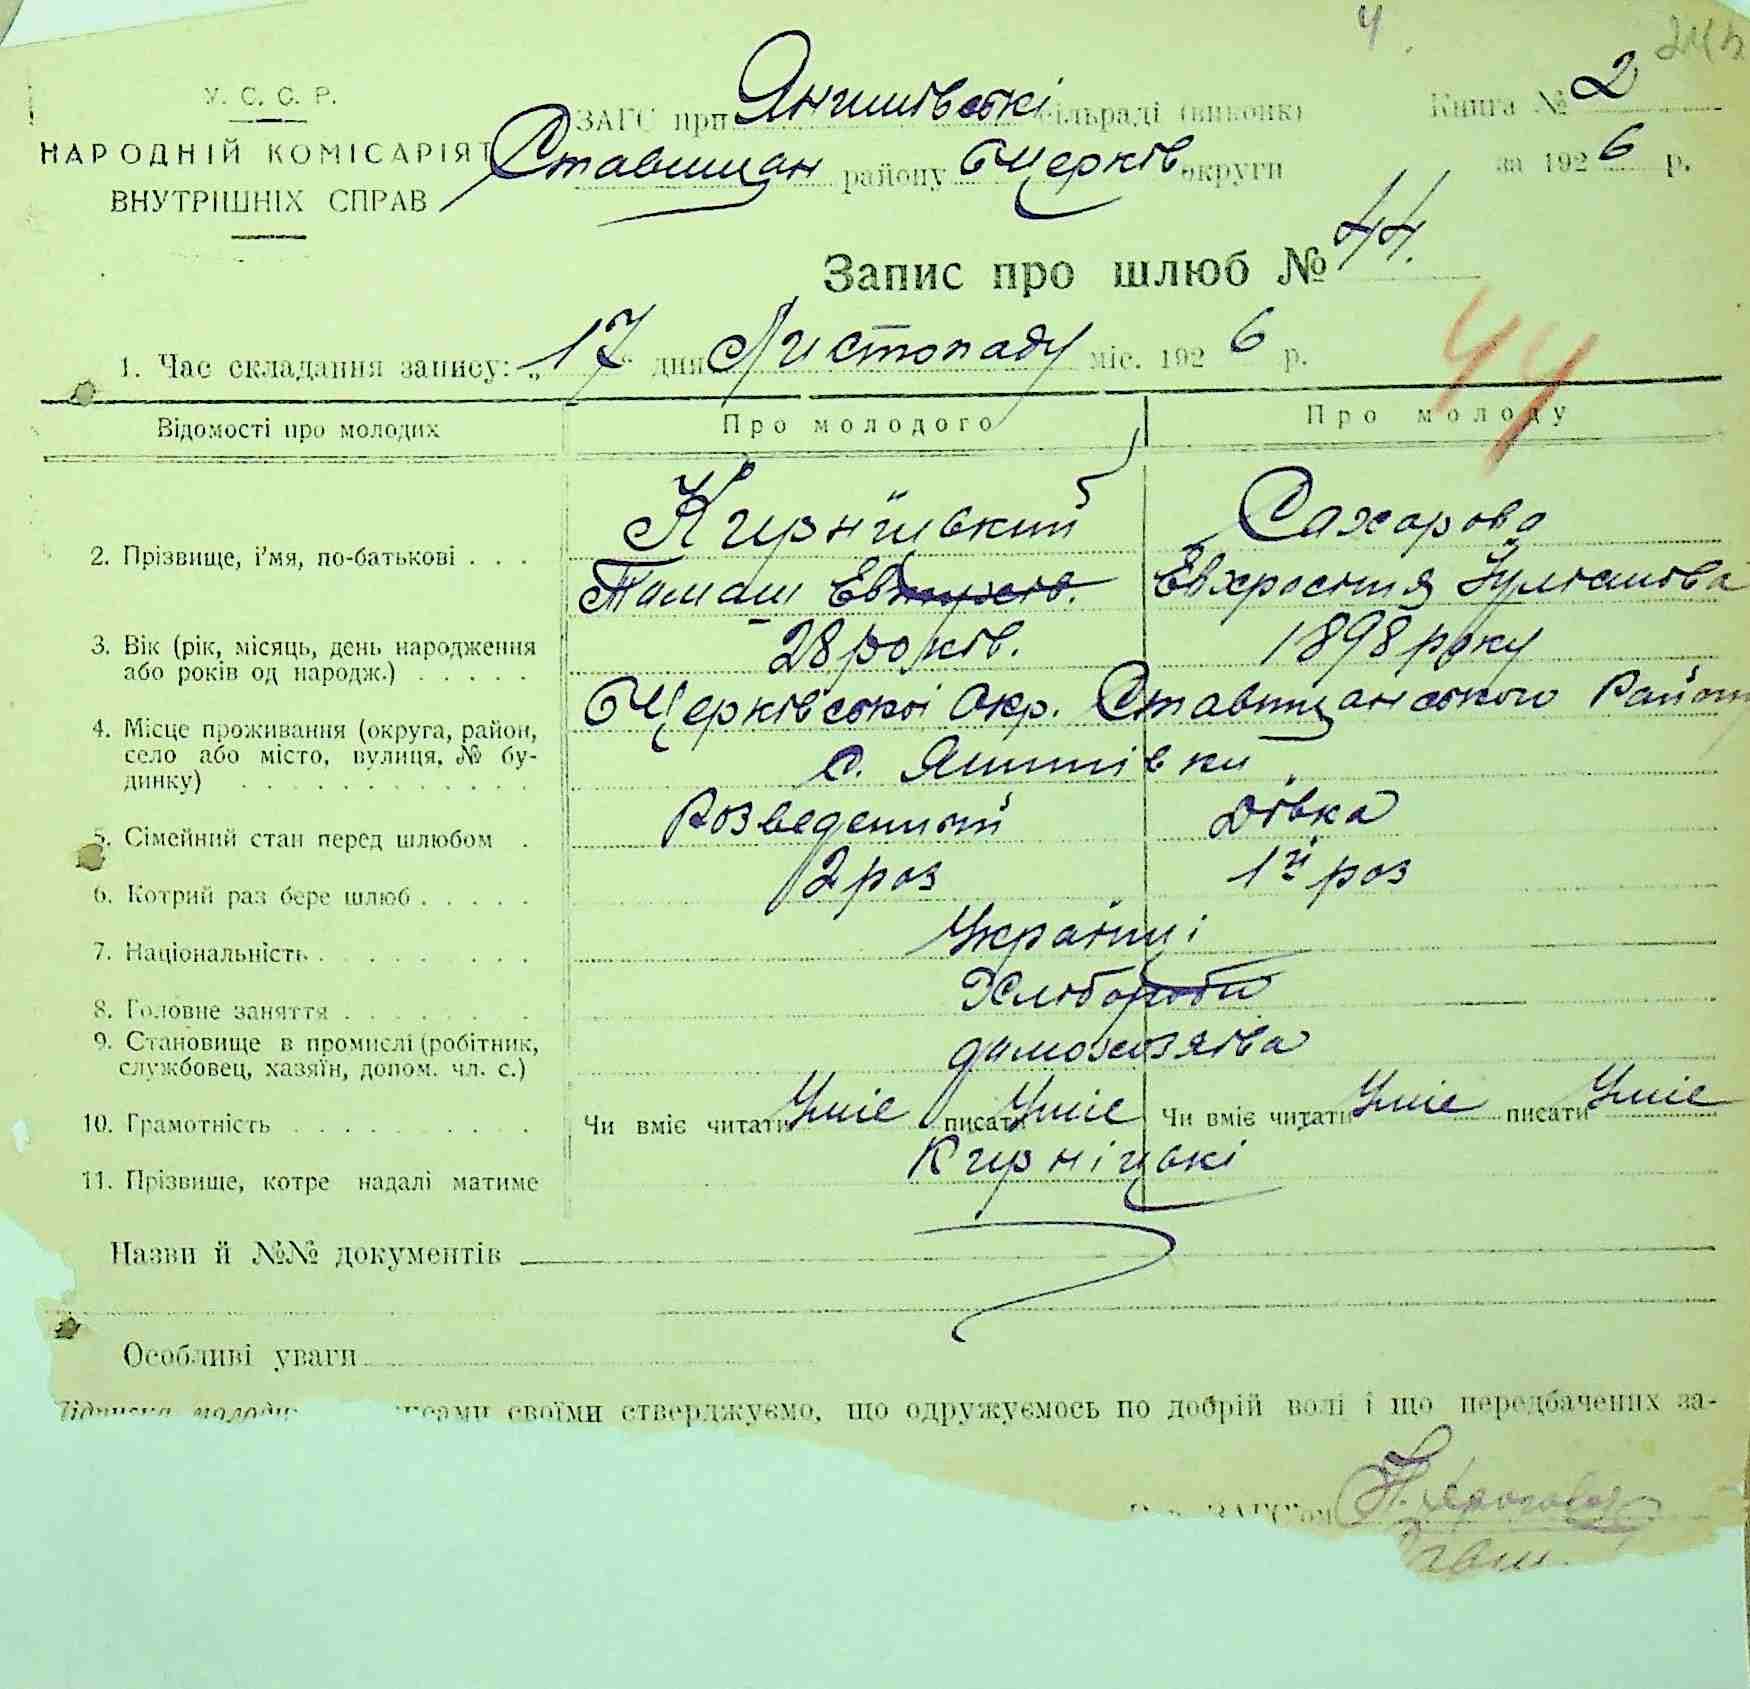 У. С. С. Р.
НАРОДНІЙ КОМІСАРІЯТ
ВНУТРІШНІХ СПРАВ
ЗАГС при Янишівські сільраді (виконк)
Ставищан району БЦерків округи
Книга № 2
за 1926 р.
Запис про шлюб № 44.
44
1. Час складання запису: „17“ дня Листопаду міс. 1926 р.
Відомості про молодих Про молодого Про молоду
2. Прізвище, і'мя, по-батькові . . . Сахарова
Тимаш
3. Вік (рік, місяць, день народження
або років од народж.) . . . . . 28 років. 1898 року
4. Місце проживання (округа, район,
село або місто, вулиця, № бу-
динку) . . . . . . . . . . . .
БЦерківської Окр. Ставищанського Району
с. Янишівки
5. Сімейний стан перед шлюбом . Розведений Дівка
6. Котрий раз бере шлюб . . . . . 2 роз 1й роз
7. Національність . . . . . . . . Українці
8. Головне заняття . . . . . . . Хлібороби
9. Становище в промислі (робітник,
службовец, хазяїн, допом. чл. с.)
10. Грамотність . . . . . . . . . . Чи вміє читати Уміє писати Уміє Чи вміє читати Уміє писати Уміє
11. Прізвище, котре надалі матиме Кирніцькі
Назви й №№ документів
Особливі уваги
своїми стверджуємо, що одружуємось по добрій волі і що передбачених за-